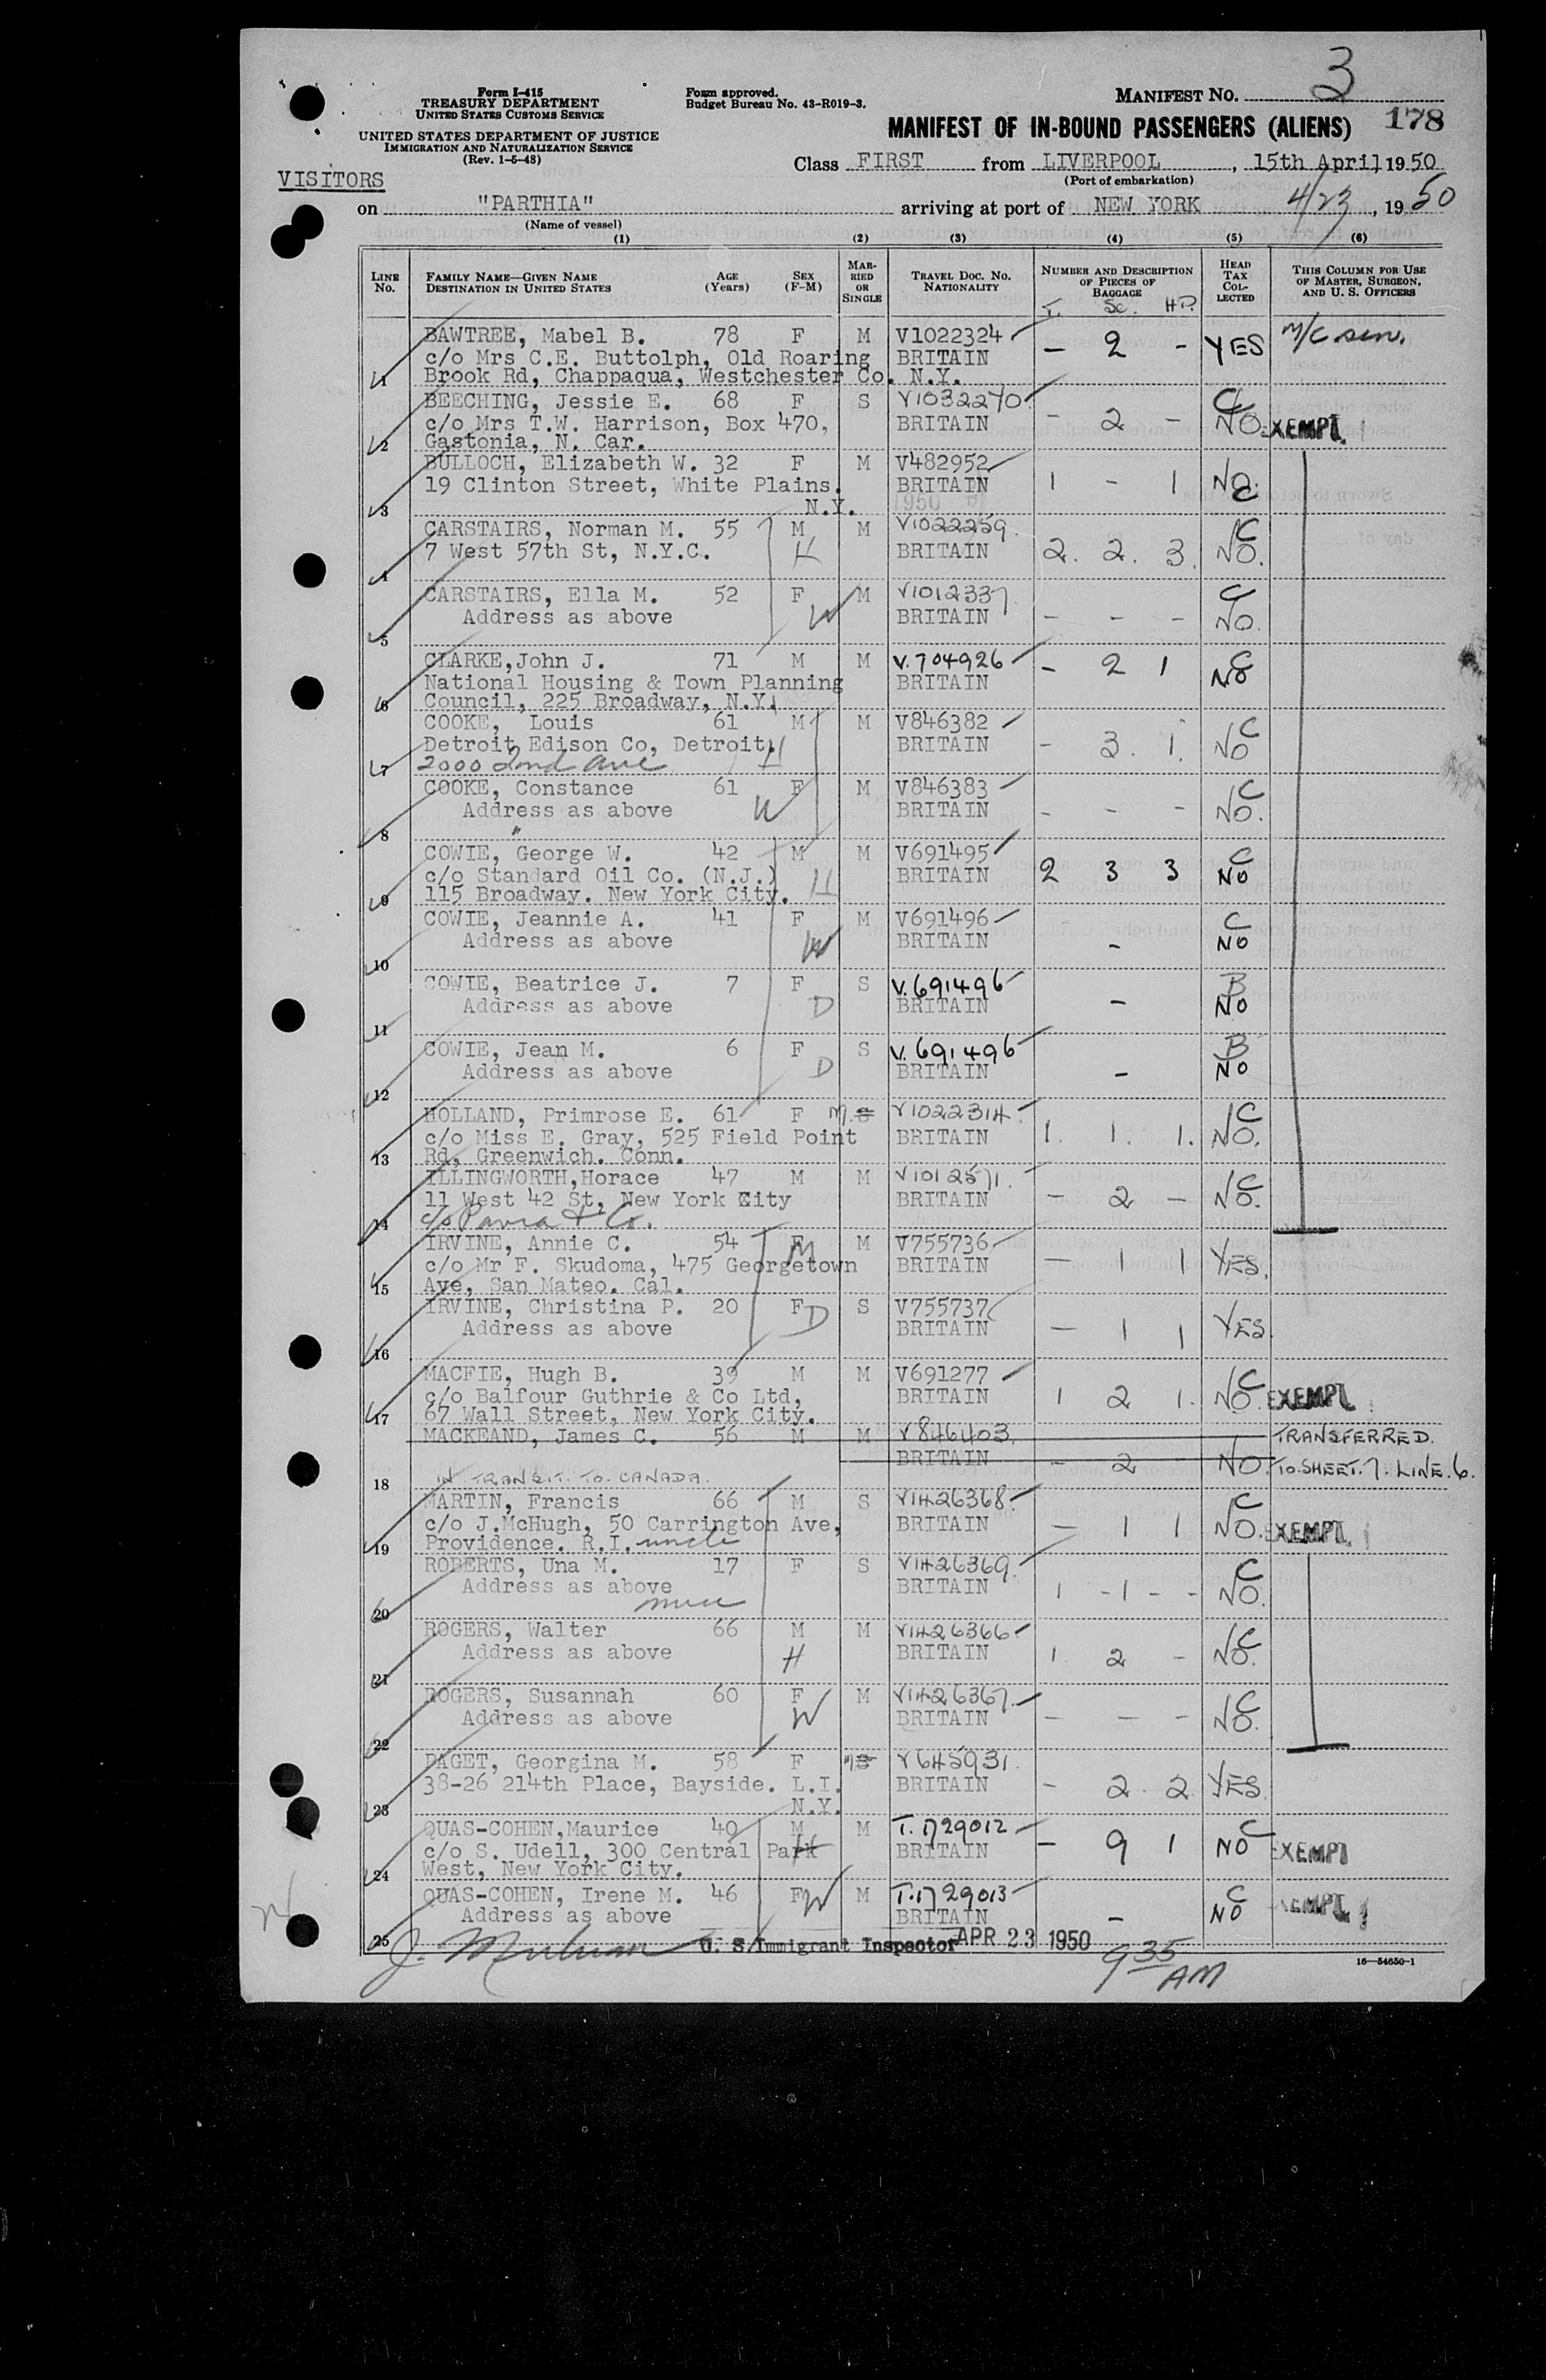 3
Form I-415
TREASURY DEPARTMENT
UNITED STATES CUSTOMS SERVICE
UNITED STATES DEPARTMENT OF JUSTICE
IMMIGRATION AND NATURALIZATION SERVICE
(Rev. 1-5-48)
Form approved.
Budget Bureau No. 43-R019-3.
MANIFEST NO.
MANIFEST OF IN-BOUND PASSENGERS (ALIENS) 178
Class FIRST from LIVERPOOL, 15th April, 1950
(Port of embarkation)
VISITORS
on "PARTHIA" arriving at port of NEW YORK 4/23, 1950
(Name of vessel)
(1) (2) (3) (4) (5) (6)
LINE No. FAMILY NAME—GIVEN NAME DESTINATION IN UNITED STATES AGE (Years) SEX (F-M) MARRIED OR SINGLE TRAVEL DOC. NO. NATIONALITY NUMBER AND DESCRIPTION OF PIECES OF BAGGAGE HEAD TAX COLLECTED THIS COLUMN FOR USE OF MASTER, SURGEON, AND U. S. OFFICERS
T. Sc. HP.
BAWTREE, Mabel B. 78 F M V1022324 - 2 - YES M/C sen.
c/o Mrs C.E. Buttolph, Old Roaring BRITAIN
1 Brook Rd, Chappaqua, Westchester Co. N.Y.
BEECHING, Jessie E. 68 F S V1032270 - 2 - C NO. EXEMPT
c/o Mrs T.W. Harrison, Box 470, BRITAIN
2 Gastonia, N. Car.
BULLOCH, Elizabeth W. 32 F M V482952 1 - 1 NO. C
19 Clinton Street, White Plains. BRITAIN
3 N.Y.
CARSTAIRS, Norman M. 55 M M V1022259 2. 2. 3. C NO.
7 West 57th St, N.Y.C. H BRITAIN
4
CARSTAIRS, Ella M. 52 F M V1012337 - - - C NO.
Address as above W BRITAIN
5
CLARKE, John J. 71 M M V.704926 - 2 1 C NO
National Housing & Town Planning BRITAIN
6 Council, 225 Broadway, N.Y.
COOKE, Louis 61 M M V846382 - 3. 1. C NO
Detroit Edison Co, Detroit. H BRITAIN
7 2000 2nd Ave
COOKE, Constance 61 F M V846383 - - - C NO.
Address as above W BRITAIN
8 "
COWIE, George W. 42 M M V691495 2 3 3 C NO
c/o Standard Oil Co. (N.J.) H BRITAIN
9 115 Broadway. New York City.
COWIE, Jeannie A. 41 F M V691496 - C NO
Address as above W BRITAIN
10
COWIE, Beatrice J. 7 F S V.691496 - B NO
Address as above D BRITAIN
11
COWIE, Jean M. 6 F S V.691496 - B NO
Address as above D BRITAIN
12
HOLLAND, Primrose E. 61 F M. S V1022314 1. 1. 1. C NO.
c/o Miss E. Gray, 525 Field Point BRITAIN
13 Rd, Greenwich. Conn.
ILLINGWORTH, Horace 47 M M V1012571. - 2 - C NO.
11 West 42 St, New York City BRITAIN
14 c/o Pavra & Co.
IRVINE, Annie C. 54 F M V755736 - 1 1 YES.
c/o Mr F. Skudoma, 475 Georgetown M BRITAIN
15 Ave, San Mateo. Cal.
IRVINE, Christina P. 20 F S V755737 - 1 1 YES.
Address as above D BRITAIN
16
MACFIE, Hugh B. 39 M M V691277 1 2 1. C NO. EXEMPT
c/o Balfour Guthrie & Co Ltd, BRITAIN
17 67 Wall Street, New York City.
MACKEAND, James C. 56 M M V846403. TRANSFERRED.
BRITAIN - 2 - NO. TO. SHEET. 7. LINE. 6.
18 IN TRANSIT. TO. CANADA.
MARTIN, Francis 66 M S V1426368. - 1 1 C NO. EXEMPT
c/o J.McHugh, 50 Carrington Ave, BRITAIN
19 Providence. R.I. uncle
ROBERTS, Una M. 17 F S V1426369. 1 - 1 - - C NO.
Address as above BRITAIN
20
ROGERS, Walter 66 M M V1426366. 1. 2 - C NO.
Address as above H BRITAIN
21
ROGERS, Susannah 60 F M V1426367. - - - C NO.
Address as above W BRITAIN
22
PAGET, Georgina M. 58 F V645931. - 2. 2 YES.
38-26 214th Place, Bayside. L.I. BRITAIN
23 N.Y.
QUAS-COHEN, Maurice 40 M M T.1729012 - 9 1 C NO EXEMPT
c/o S. Udell, 300 Central Park H BRITAIN
24 West, New York City.
QUAS-COHEN, Irene M. 46 F W M T.1729013 - C NO EXEMPT
Address as above BRITAIN
25 U. S. Immigrant Inspector APR 23 1950 9 35 AM
16—54650-1